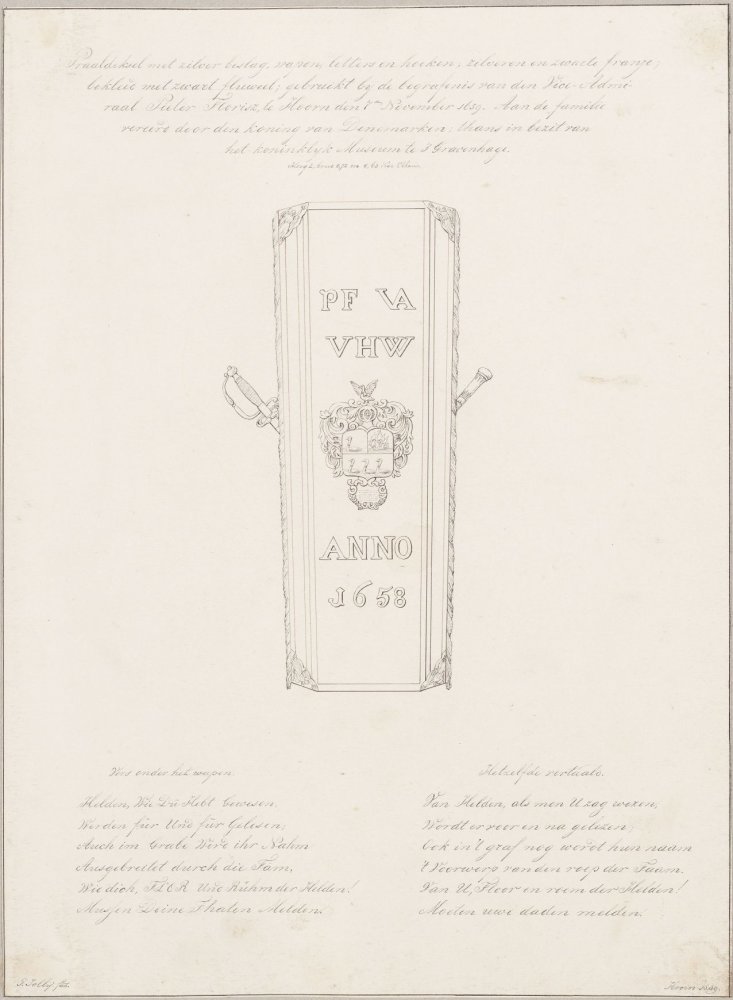 Praaldeksel met zilver beslag, wapen, letters en hoeken; zilveren en zwarte franje;
bekleed met zwart fluweel; gebruikt bij de begrafenis van den Vice-Admi-
raal Pieter Florisz, te Hoorn den November 1659. Aan de familie
vereerd door den koning van Denemarken; thans in bezit van
het koninklyk Museum te 's Gravenhage.
PF VA
VHW
ANNO
1658
Vers onder het wapen.
Helden, Wie Du Hebt Gewesen.
Werden für Und für Gelesen;
Auch im Grabe Wird ihr Nahm
Ausgebreitet durch die Fam,
Wie dich, FLOR Und Rühm der Helden!
Mussen Deine Thaten Melden.
Hetzelfde vertaald.
Van Helden, als men U zag wezen,
Wordt er voor en na gelezen;
Ook in 't graf nog wordt hun naam
't Voorwerp van den roep der Faam.
Van U, Floor en roem der Helden!
Moeten uwe daden melden.
Hoorn 1849.